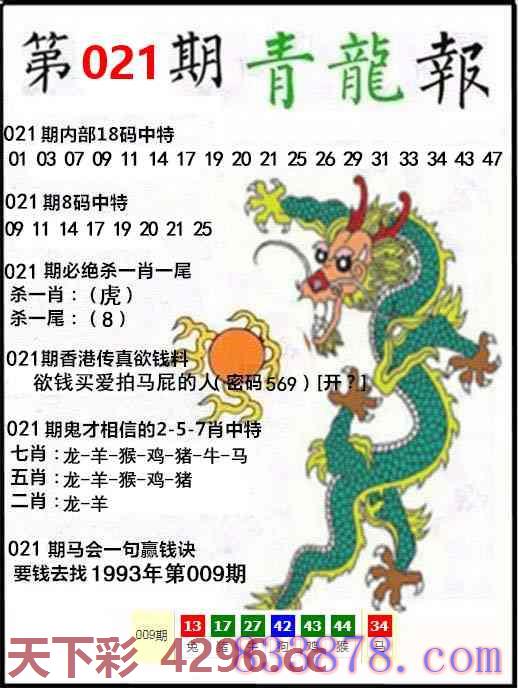 第021期青龍報
021期内部18码中特
01 03 07 09 11 14 17 19 20 21 25 26 29 31 33 34 43 47
021期8码中特
09 11 14 17 19 20 21 25
021 期必绝杀一肖一尾
杀一肖：（虎）
杀一尾：（8）
021期香港传真欲钱料
欲钱买爱拍马屁的人（密码569）[开？]
021期鬼才相信的2-5-7肖中特
七肖：龙-羊-猴-鸡-猪-牛-马
五肖：龙-羊-猴-鸡-猪
二肖：龙-羊
021 期马会一句赢钱诀
要钱去找1993年第009期
009期 13 17 27 42 43 44 34
兔 狗 鸡 猴 马
天下彩 4296.cc
838878.com